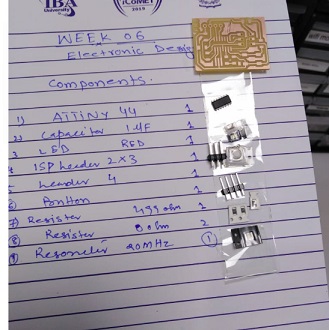 IBA
University
iCoMET
2019
WEEK 06
Electronic Design
Components.
1) ATTiny 44 1
2) Capacitor 1MF 1
3 LED RED 1
4 ISP Header 2x3 1
5 header 4 1
6) 1
7) Resister 499 ohm 1
8) Resister 0 ohm 2
9) 20MHz 1